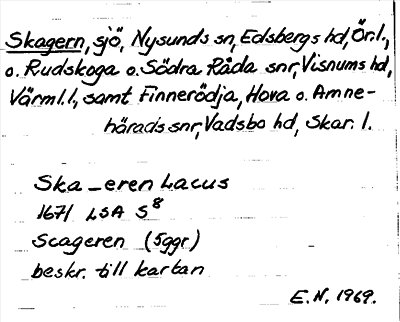 Skagern, sjö, Nysunds sn, Edsbergs hd, Ör. l.,
o. Rudskoga o. Södra Råda snr, Visnums hd,
Värml. l., samt Finnerödja, Hova o. Amne-
härads snr, Vadsbo hd, Skar. l.
Ska_eren Lacus
1671 LSA S8
Scageren (5ggr)
beskr. till kartan
E.N. 1969.